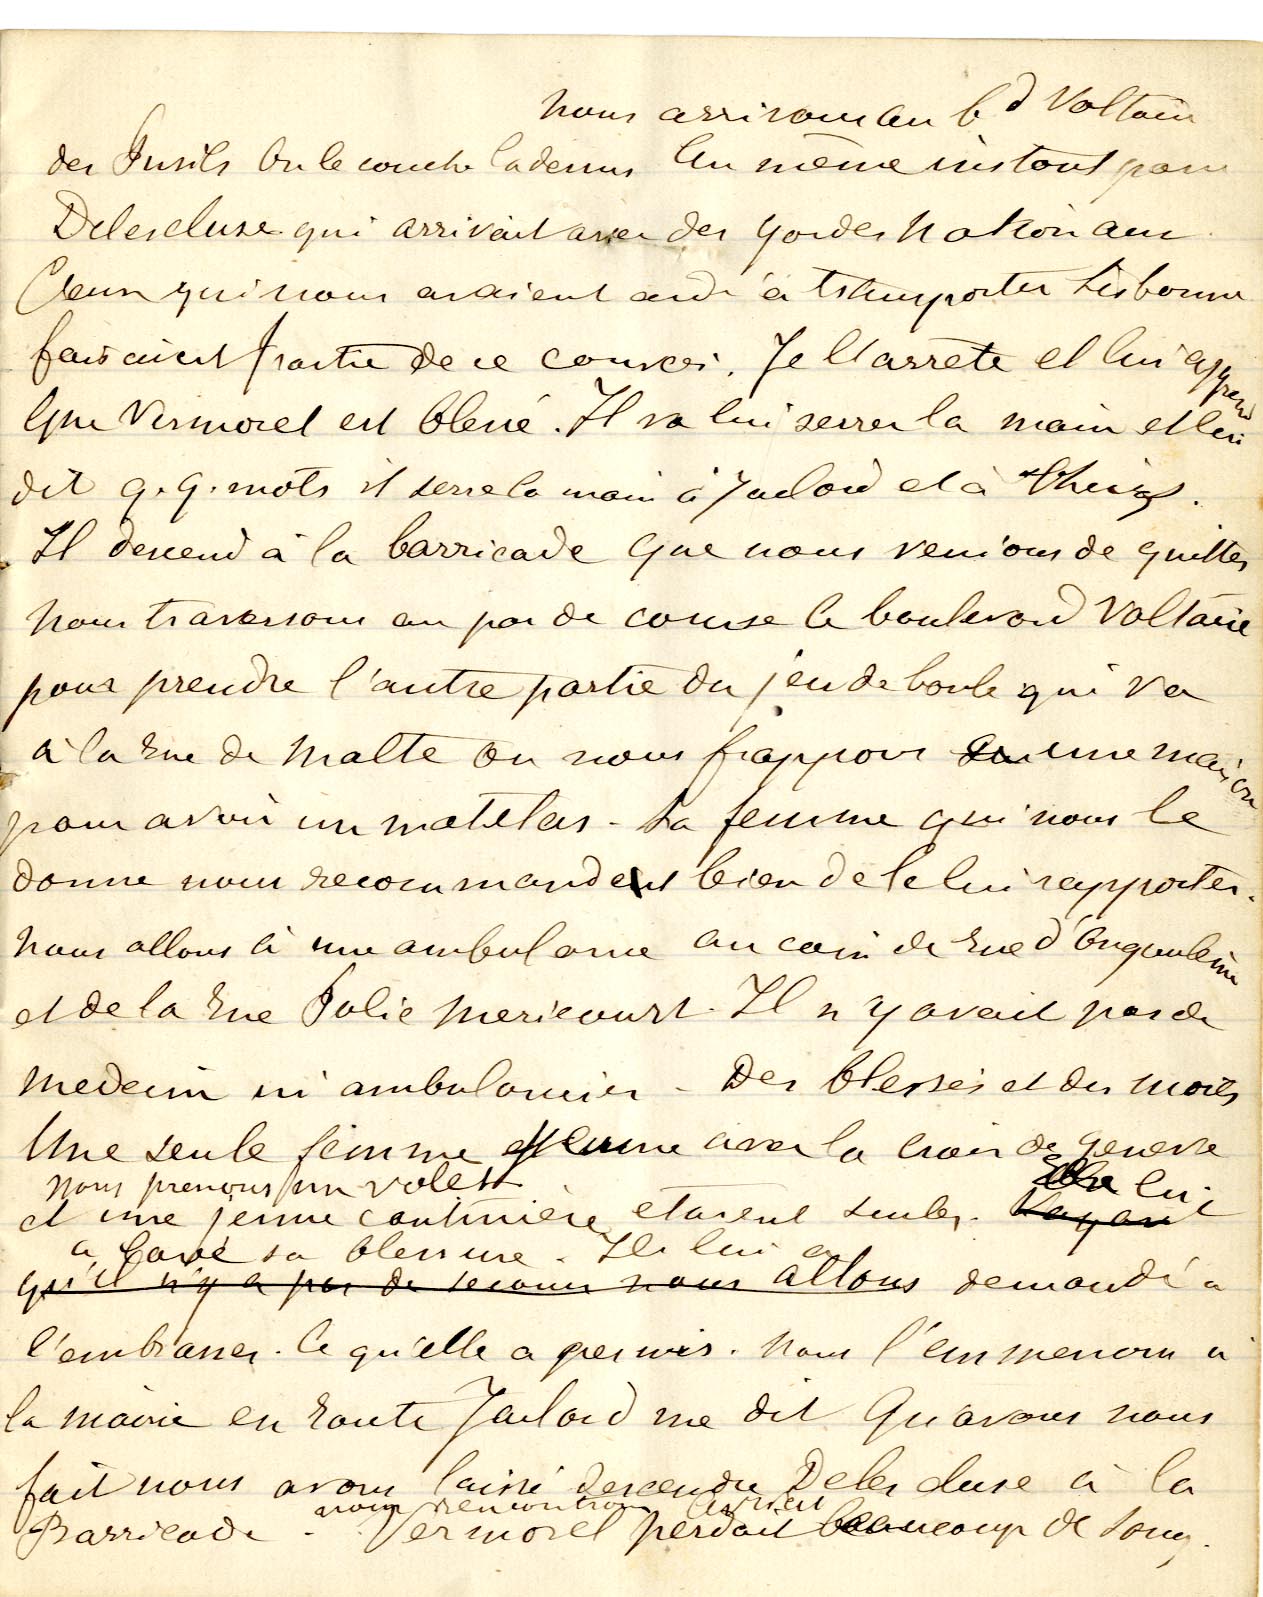 nous arrivons au bd Voltaire
des fusils On le couche la dessus Au même instant passe
Delescluse qui arrivait avec des gardes nationaux
Ceux qui nous avaient aidé à transporter Lisbonne
faisaient partie de ce convoi. Je l'arrete et lui apprend
que Vermorel est blessé. Il va lui serrer la main et lui
dit q.q. mots il serre la main à Jaclard et à Theisz.
Il descend à la barricade que nous venions de quitter
nous traversons au pas de course le boulevard Voltaire
pour prendre l'autre partie du jeu de boule qui va
à la rue de Malte On nous frappons a une maison
pour avoir un matelas - La femme qui nous le
donne nous recommande bien de le lui rapporter.
nous allons à une ambulance au coin de rue d'Angouleme
et de la rue Folie Mericourt. Il n'y avait pas de
medecin ni ambulancier - Des blessés et des morts
Une seule femme avec la croix de geneve
nous prenons un volet
et une jeune cantinière etaient seules. Elle lui
Voyant
a lavé sa blessure. Il lui a
qu'il n'y a pas de secours nous allons demandé a
l'embrasser. Ce qu'elle a permis. Nous l'emmenons à
la mairie en route Jaclard me dit Qu'avons nous
fait nous avons laissé descendre Delescluse à la
nous rencontrons
Barricade - Vermorel perdait beaucoup de sang.